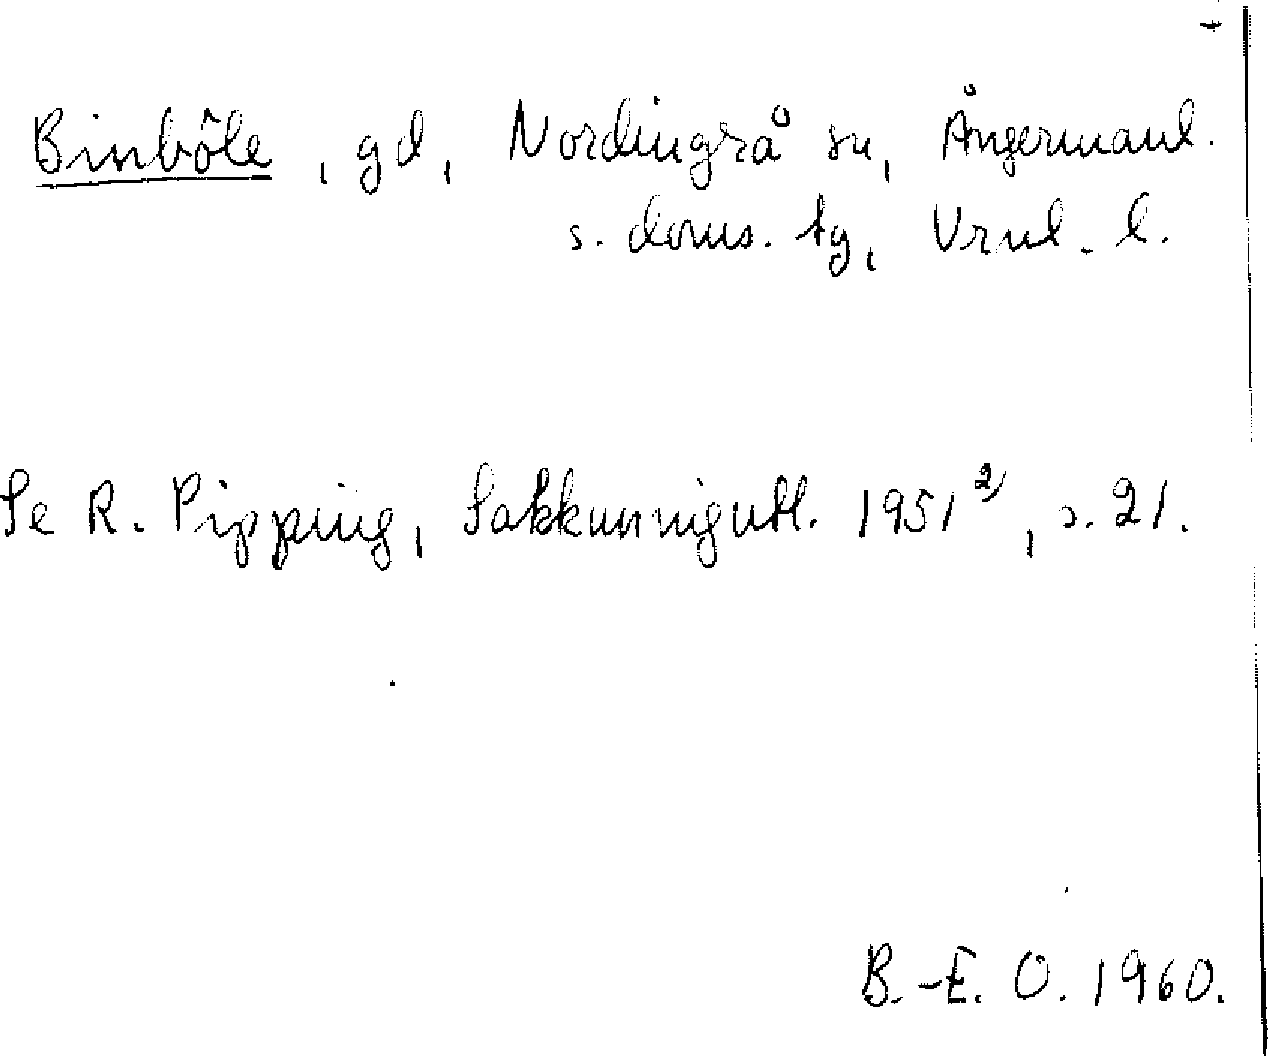 Binböle, gd, Nordingrå sn, Ångermanl.
s. doms. tg, Vrnl. l.
Se R. Pipping, Sakkunnigutl. 1951²⁾, s. 21.
B.-E. O. 1960.